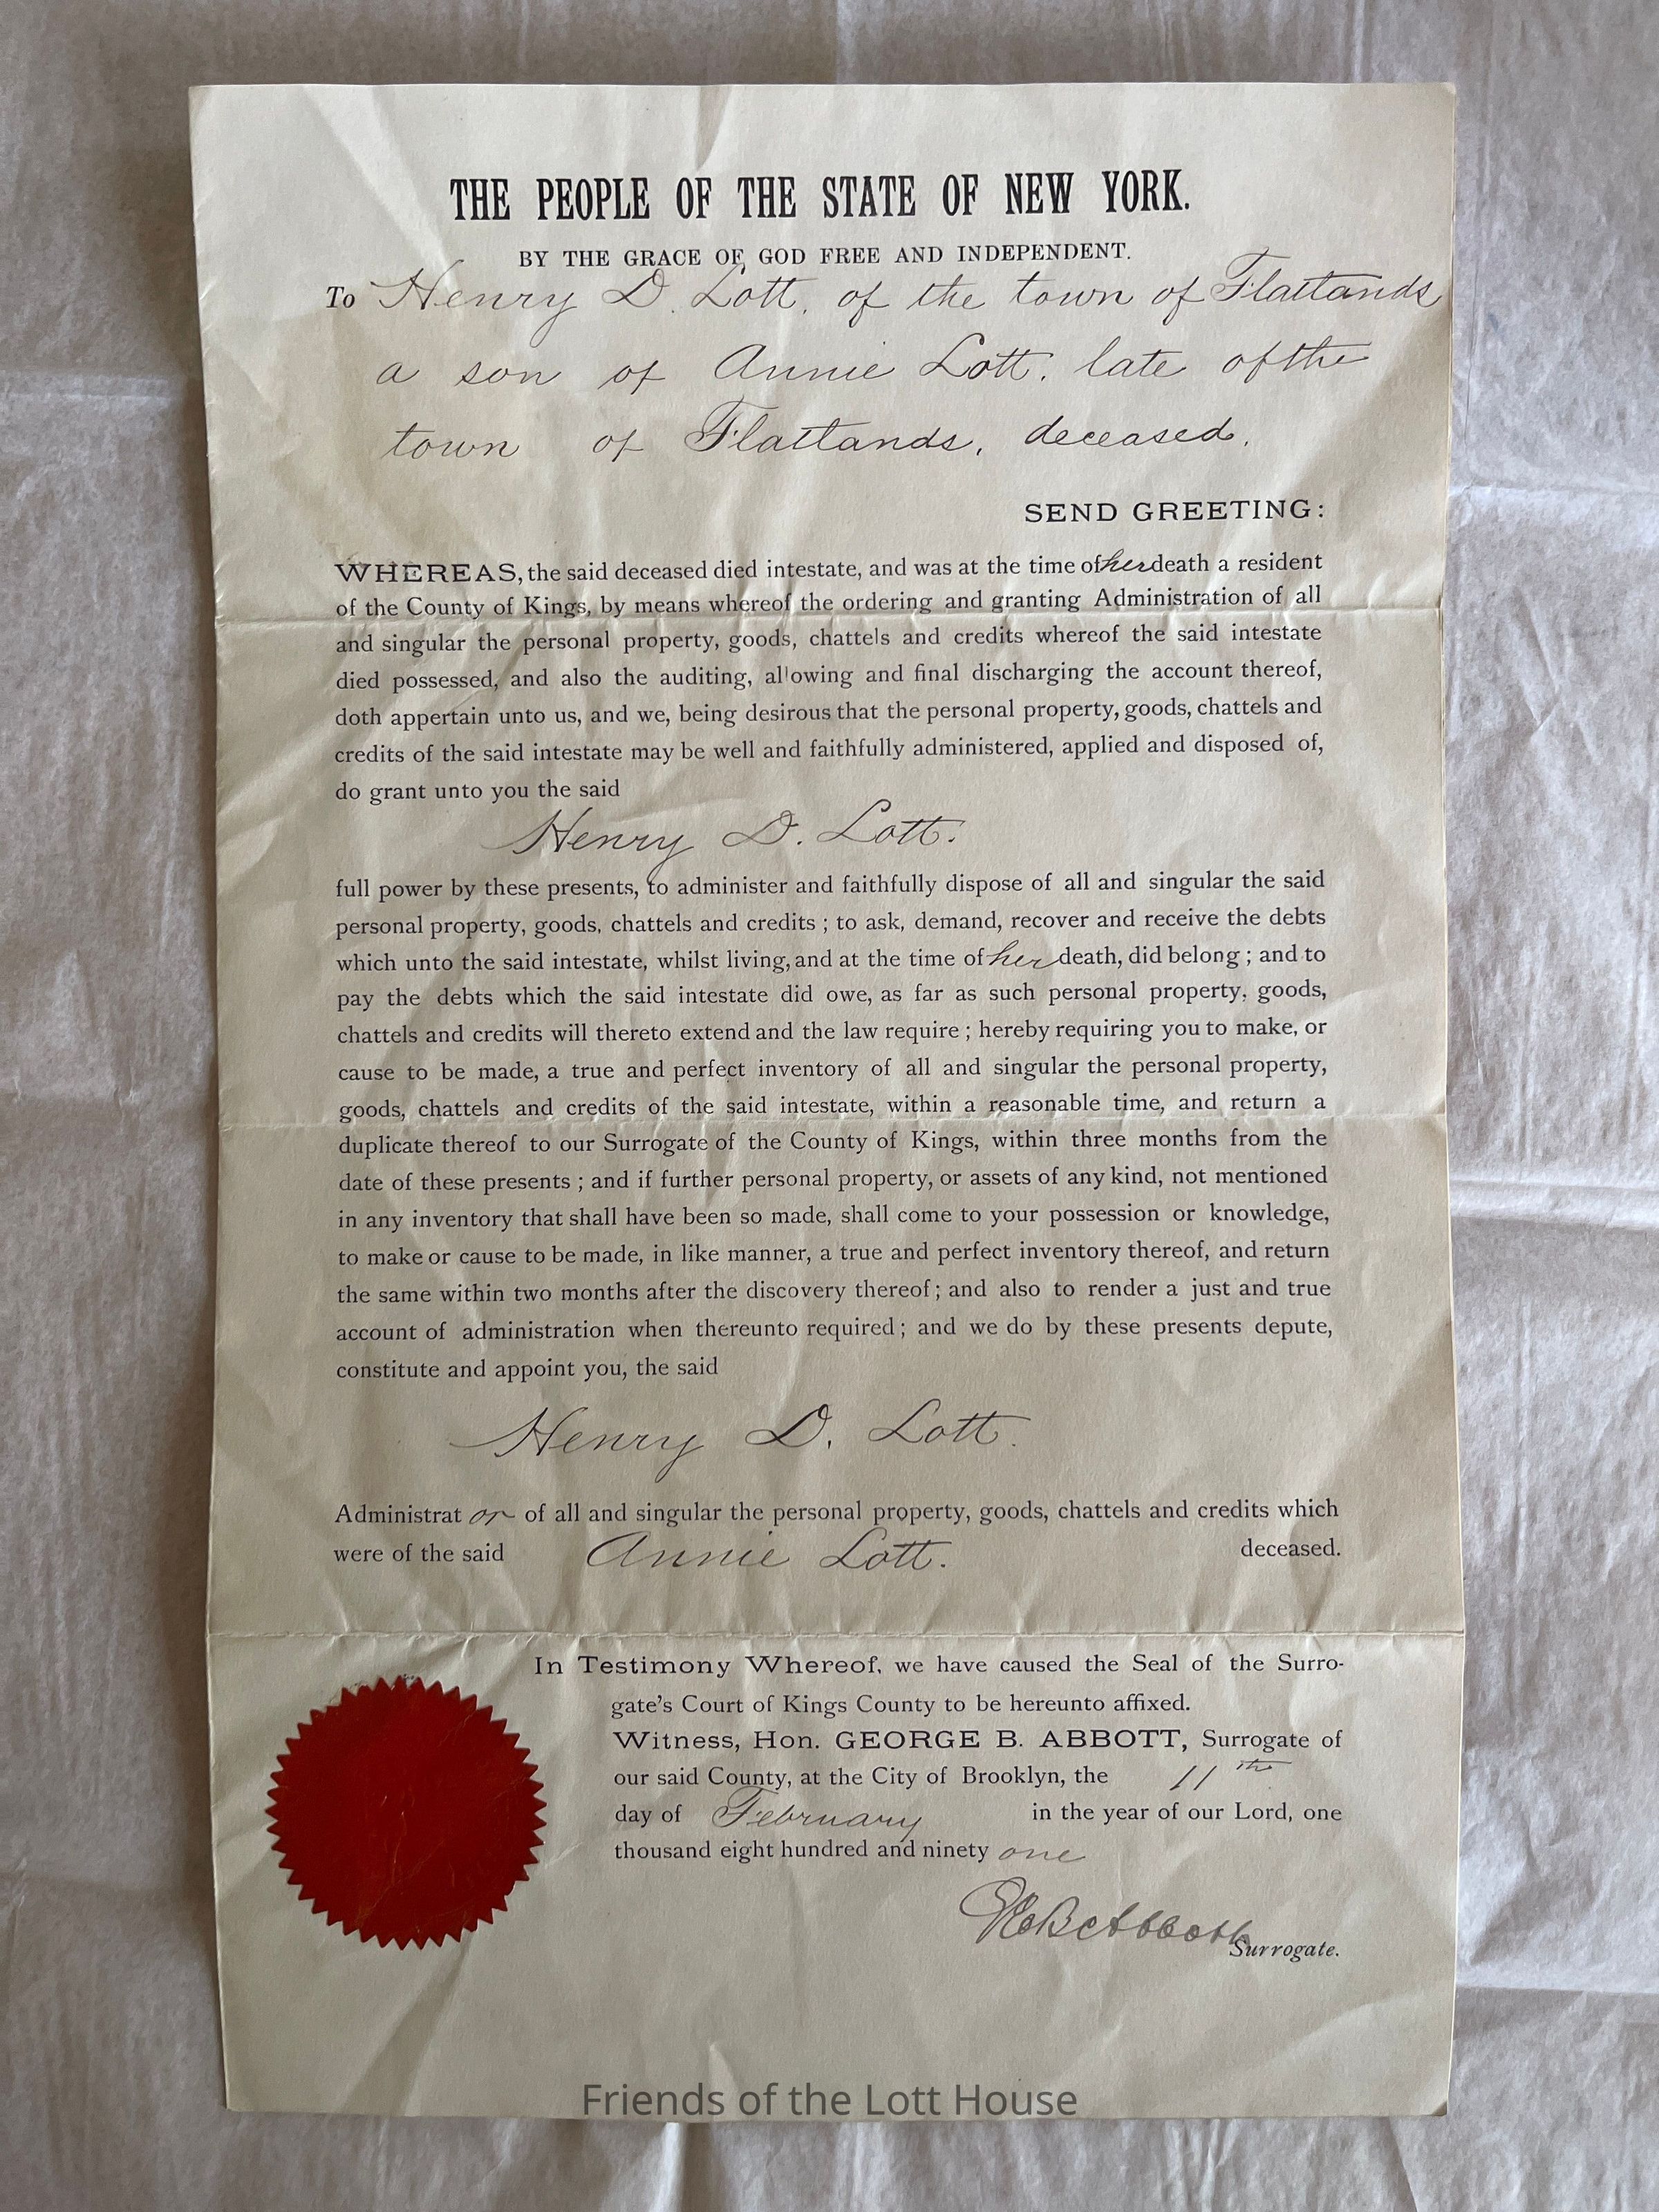 THE PEOPLE OF THE STATE OF NEW YORK.
BY THE GRACE OF GOD FREE AND INDEPENDENT.
To Henry D. Lott, of the town of Flatlands
a son of Annie Lott, late of the
town of Flatlands, deceased.
SEND GREETING:
WHEREAS, the said deceased died intestate, and was at the time of her death a resident
of the County of Kings, by means whereof the ordering and granting Administration of all
and singular the personal property, goods, chattels and credits whereof the said intestate
died possessed, and also the auditing, allowing and final discharging the account thereof,
doth appertain unto us, and we, being desirous that the personal property, goods, chattels and
credits of the said intestate may be well and faithfully administered, applied and disposed of,
do grant unto you the said
Henry D. Lott.
full power by these presents, to administer and faithfully dispose of all and singular the said
personal property, goods, chattels and credits ; to ask, demand, recover and receive the debts
which unto the said intestate, whilst living, and at the time of her death, did belong ; and to
pay the debts which the said intestate did owe, as far as such personal property, goods,
chattels and credits will thereto extend and the law require ; hereby requiring you to make, or
cause to be made, a true and perfect inventory of all and singular the personal property,
goods, chattels and credits of the said intestate, within a reasonable time, and return a
duplicate thereof to our Surrogate of the County of Kings, within three months from the
date of these presents ; and if further personal property, or assets of any kind, not mentioned
in any inventory that shall have been so made, shall come to your possession or knowledge,
to make or cause to be made, in like manner, a true and perfect inventory thereof, and return
the same within two months after the discovery thereof ; and also to render a just and true
account of administration when thereunto required ; and we do by these presents depute,
constitute and appoint you, the said
Henry D. Lott.
Administrat or of all and singular the personal property, goods, chattels and credits which
were of the said Annie Lott. deceased.
In Testimony Whereof, we have caused the Seal of the Surro-
gate's Court of Kings County to be hereunto affixed.
Witness, Hon. GEORGE B. ABBOTT, Surrogate of
our said County, at the City of Brooklyn, the 11th
day of February in the year of our Lord, one
thousand eight hundred and ninety one
Geo B Abbott
Surrogate.
Friends of the Lott House